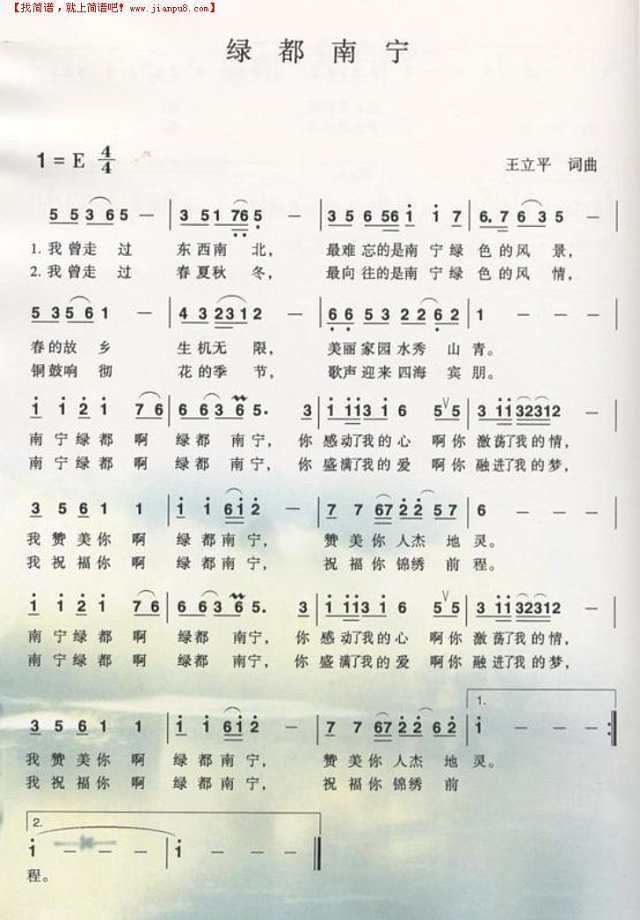 【找简谱，就上简谱吧！www.jianpu8.com】
绿都南宁
1=E 4/4
王立平 词曲
5 5 3 6 5 — 3 5 1 7 6 5 — 3 5 6 5 6 i i 7 6. 7 6 3 5 —
1.我曾走 过 东西南 北， 最难忘的是南宁绿色的风 景，
2.我曾走 过 春夏秋 冬， 最向往的是南宁绿色的风 情，
5 3 5 6 1 — 4 3 2 3 1 2 — 6 6 5 3 2 2 6 2 1 — — —
春的故 乡 生机无 限， 美丽家园水秀 山 青。
铜鼓响 彻 花的季 节， 歌声迎来四海 宾 朋。
i i 2 i 7 6 6 6 3 6 5. 3 i i i 3 i 6 5 V 5 3 i i 3 2 3 1 2 —
南宁绿都 啊 绿都 南宁， 你 感动了我的心 啊你 激荡了我的情，
南宁绿都 啊 绿都 南宁， 你 盛满了我的爱 啊你 融进了我的梦，
3 5 6 1 1 i i 6 i 2 — 7 7 6 7 2 2 5 7 6 — — —
我赞美你啊 绿都南宁， 赞美你人杰 地 灵。
我祝福你啊 绿都南宁， 祝福你锦绣 前 程。
i i 2 i 7 6 6 6 3 6 5. 3 i i i 3 i 6 5 V 5 3 i i 3 2 3 1 2 —
南宁绿都 啊 绿都 南宁， 你 感动了我的心 啊你 激荡了我的情，
南宁绿都 啊 绿都 南宁， 你 盛满了我的爱 啊你 融进了我的梦，
1.
3 5 6 1 1 i i 6 i 2 — 7 7 6 7 2 2 6 2 i — —
我赞美你啊 绿都南宁， 赞美你人杰 地 灵。
我祝福你啊 绿都南宁， 祝福你锦绣 前
2.
i — — — i — —
程。